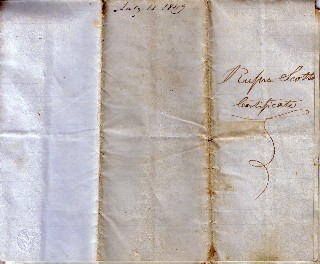 July 11 1849
Rufus Scotts
Certificate